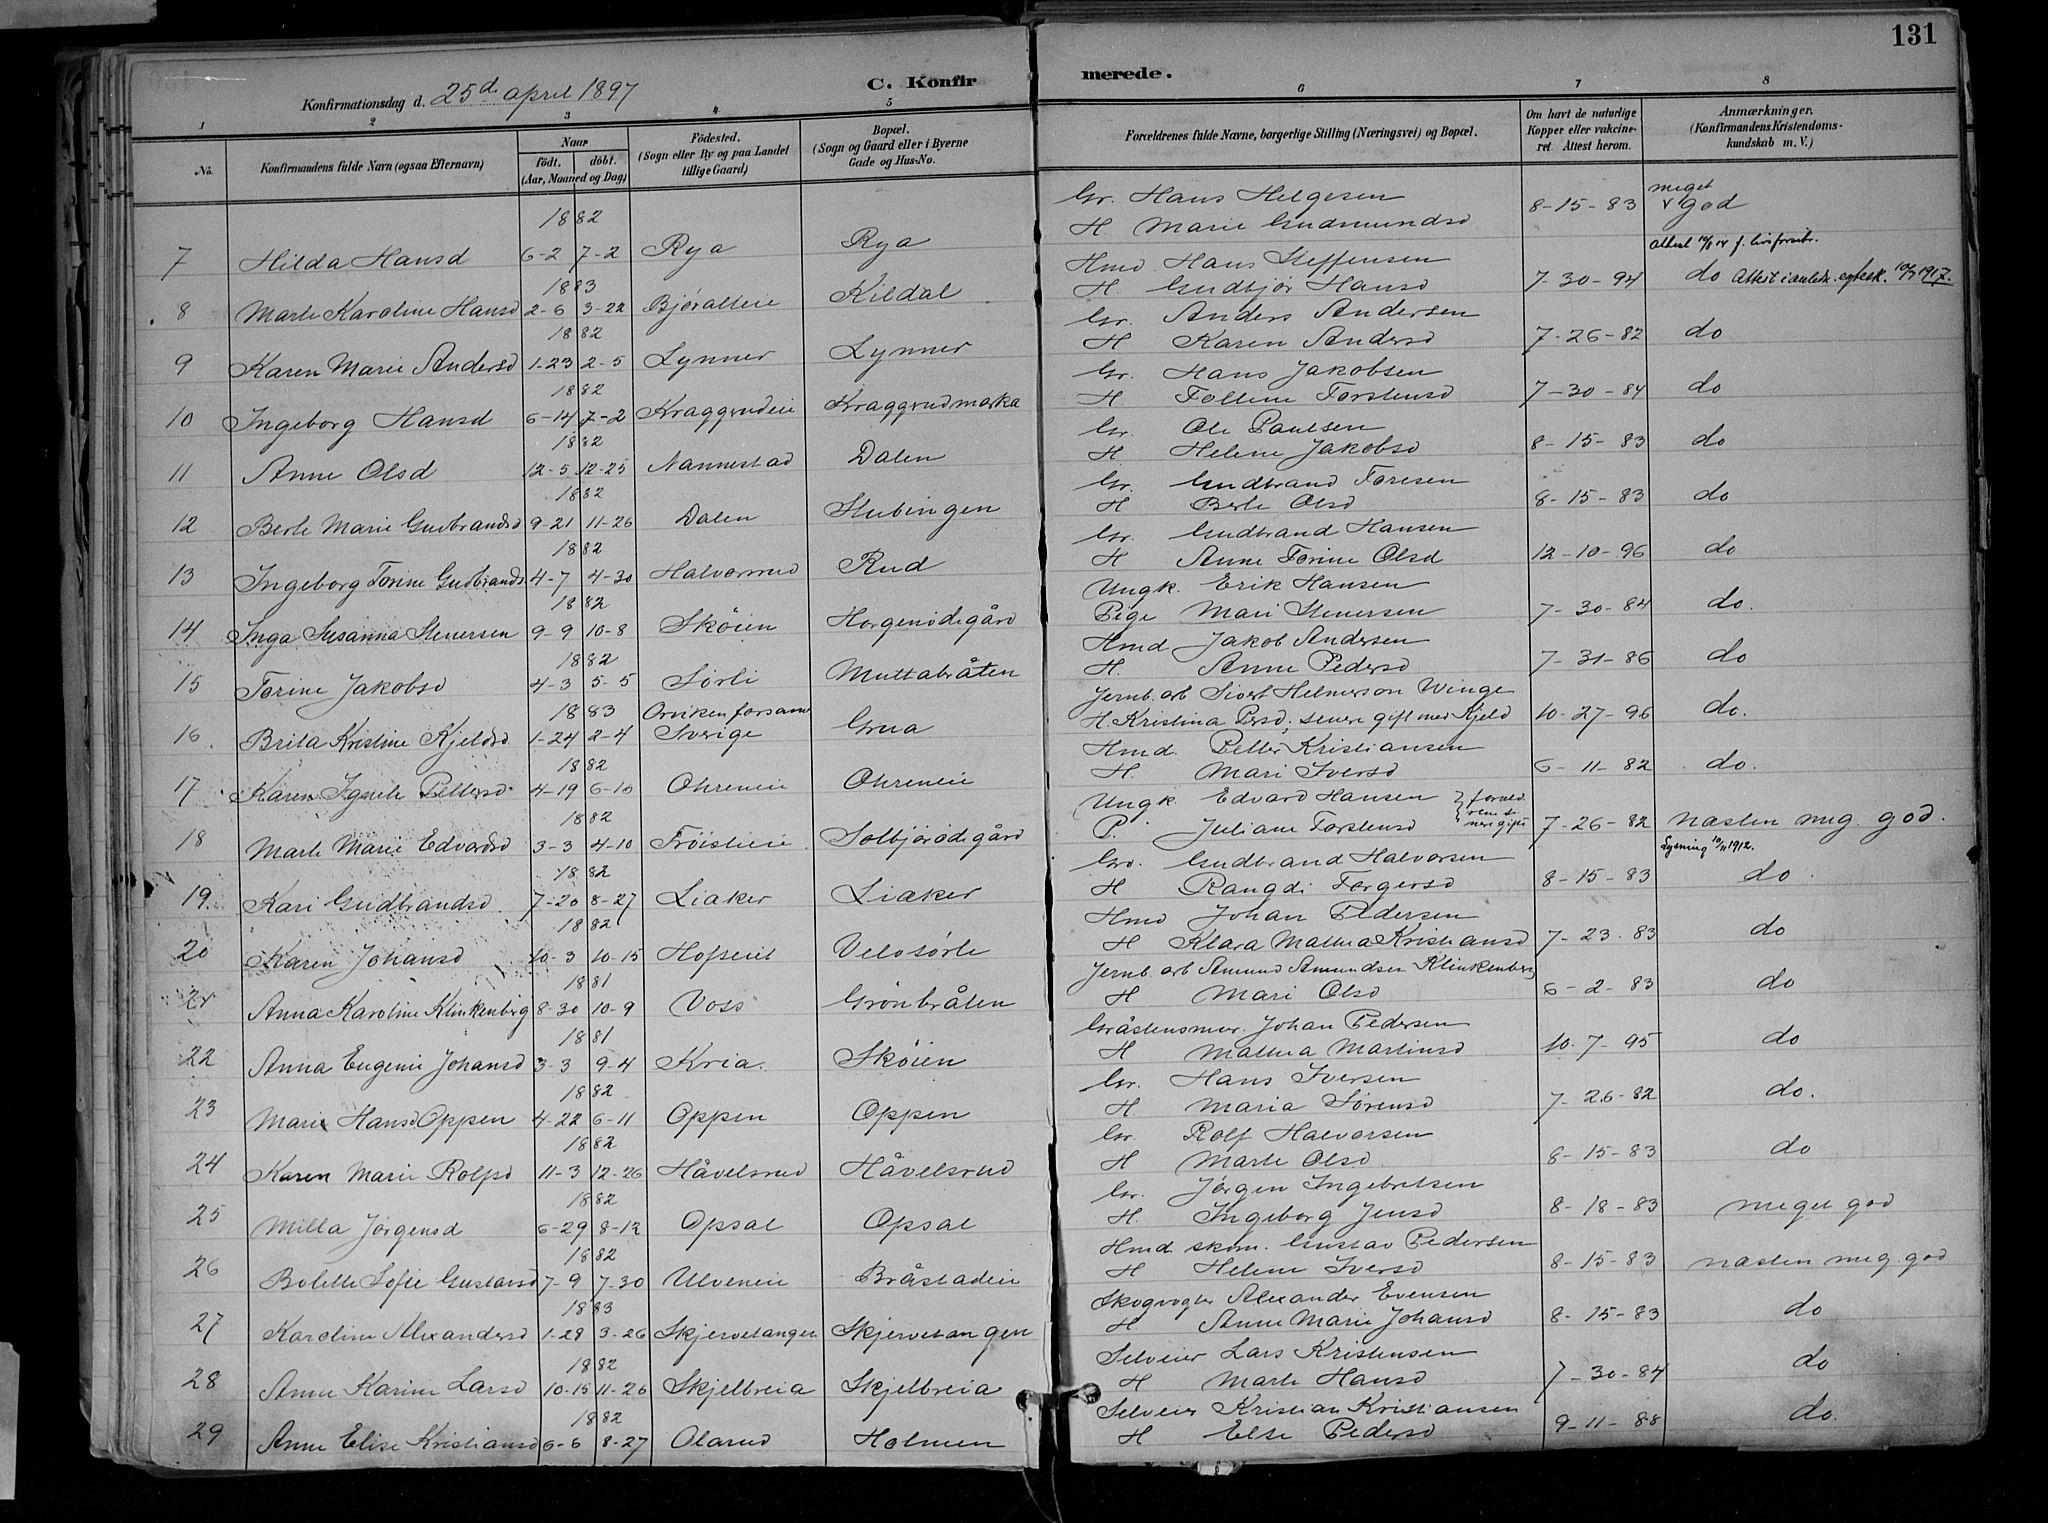 131
C. Konfirmerede.
Konfirmationsdag d. 25d april 1897
1 2 3 4 5 6 7 8
No. Konfirmandens fulde Navn (ogsaa Efternavn) Naar födt. döbt. (Aar, Maaned og Dag) Födested. (Sogn eller By og paa Landet tillige Gaard) Bopæl. (Sogn og Gaard eller i Byerne Gade og Hus-No. Forældrenes fulde Navne, borgerlige Stilling (Næringsvei) og Bopæl. Om havt de naturlige Kopper eller vakcineret. Attest herom. Anmærkninger. (Konfirmandens Kristendomskundskab m. V.)
1882 Gr. Hans Helgesen meget
7 Hilda Hansd 6-2 7-2 Rya Rya H. Marie Gudmundsd 8-15-83 v god
1883 Hmd. Hans Steffensen Attest f. livsforsikr.
8 Marte Karoline Hansd 2-6 3-22 Björalteie Kildal H. Gudbjör Hansd 7-30-94 do Attest i anledn. 1917.
1882 Gr. Anders Andersen
9 Karen Marie Andersd 1-23 2-5 Lynner Lynner H Karen Andersd 7-26-82 do
1882 Gr. Hans Jakobsen
10 Ingeborg Hansd 6-14 7-2 Kraggrudeie Kraggrudmarka H Tolline Torstensd 7-30-84 do
1882 Gr. Ole Paulsen
11 Anne Olsd 12-5 12-25 Nannestad Dalen H Helene Jakobsd 8-15-83 do
1882 Gr. Gudbrand Toresen
12 Berte Marie Gudbrandsd 9-21 11-26 Dalen Stubingen H Berte Olsd 8-15-83 do
1882 Gr. Gudbrand Hansen
13 Ingeborg Torine Gudbrands 4-7 4-30 Halvorsrud Rud H Anne Torine Olsd 12-10-96 do
1882 Ungk. Erik Hansen
14 Inga Susanna Stenersen 9-9 10-8 Sköien Horgenödegård Pige Mari Stenersen 7-30-84 do.
1882 Hmd Jakob Andersen
15 Torine Jakobsd 4-3 5-5 Sörli Muttabråten H. Anne Pedersd 7-31-86 do
1883 Orviken forsaml Jernb. arb Sivert Helmerson Winge
16. Brita Kristine Kjeldsd 1-24 2-4 Sverige Grua H. Kristina Persd, senere gift med Kjeld 10-27-96 do.
1882 Hmd. Petter Kristiansen
17 Karen Agnete Pettersd 4-19 6-10 Ohreneie Ohreneie H. Mari Iversd 6-11-82 do.
1882 Ungk. Edvard Hansen } foræld
18 Marte Marie Edvardsd 3-3 4-10 Fröistieie Solbjörödegård P. Juliane Torstensd rene senere gift 7-26-82 næsten meg. god.
1882 Gr. Gudbrand Halvorsen Lysning 10/11 1912.
19. Kari Gudbrandsd 7-20 8-27 Liaker Liaker H Rangdi Torgersd 8-15-83 do.
1882 Hmd Johan Pedersen
20 Karen Johansd 10-3 10-15 Hofseie Velosörli H Klara Mathea Kristiansd 7-23-83 do
1881 Jernb. arb Amund Amundsen Klinkenberg
21 Anna Karoline Klinkenberg 8-30 10-9 Voss Grönbråten H Mari Olsd 6-2-83 do
1881 Gråstensmur. Johan Pedersen
22 Anna Eugenie Johansd 3-3 9-4 Kria. Sköien H Mathea Martinsd 10-7-95 do
1882 Gr. Hans Iversen
23 Marie Hansd Oppen 4-22 6-11 Oppen Oppen H Maria Sörensd 7-26-82 do.
1882 Gr. Rolf Halvorsen
24 Karen Marie Rolfsd 11-3 12-26 Håvelsrud Håvelsrud H Marte Olsd 8-15-83 do
1882 Gr. Jörgen Ingebretsen
25 Milla Jörgensd 6-29 8-12 Opsal Opsal H. Ingeborg Jensd 8-18-83 meget god
1882 Hmd. skom. Gustav Pedersen
26 Bolette Sofie Gustavsd 7-9 7-30 Ulveneie Bråstadeie H Helene Iversd 8-15-83 næsten meg. god
1883 Skogvogter Alexander Evensen
27 Karoline Alexandersd 1-28 3-26 Skjervetangen Skjervetangen H. Anne Marie Johansd 8-15-83 do
1882 Selveier Lars Kristensen
28 Anne Karine Larsd 10-15 11-26 Skjelbreia Skjelbreia H Marte Hansd 7-30-84 do
1882 Selveier Kristian Kristiansen
29 Anne Elise Kristiansd 6-6 8-27 Olarud Holmen H Else Pedersd 9-11-88 do.